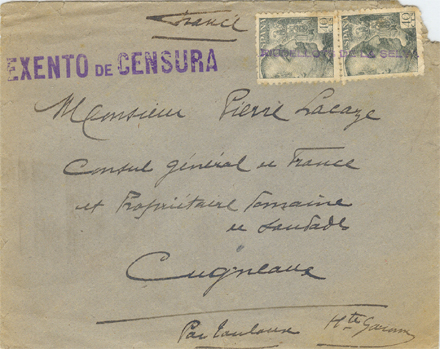 France
EXENTO DE CENSURA
40
40
Monsieur Pierre Lacaze
Consul général de France
et Propriétaire Domaine
de
Cugneaux
Par Toulouse Hte Garonne